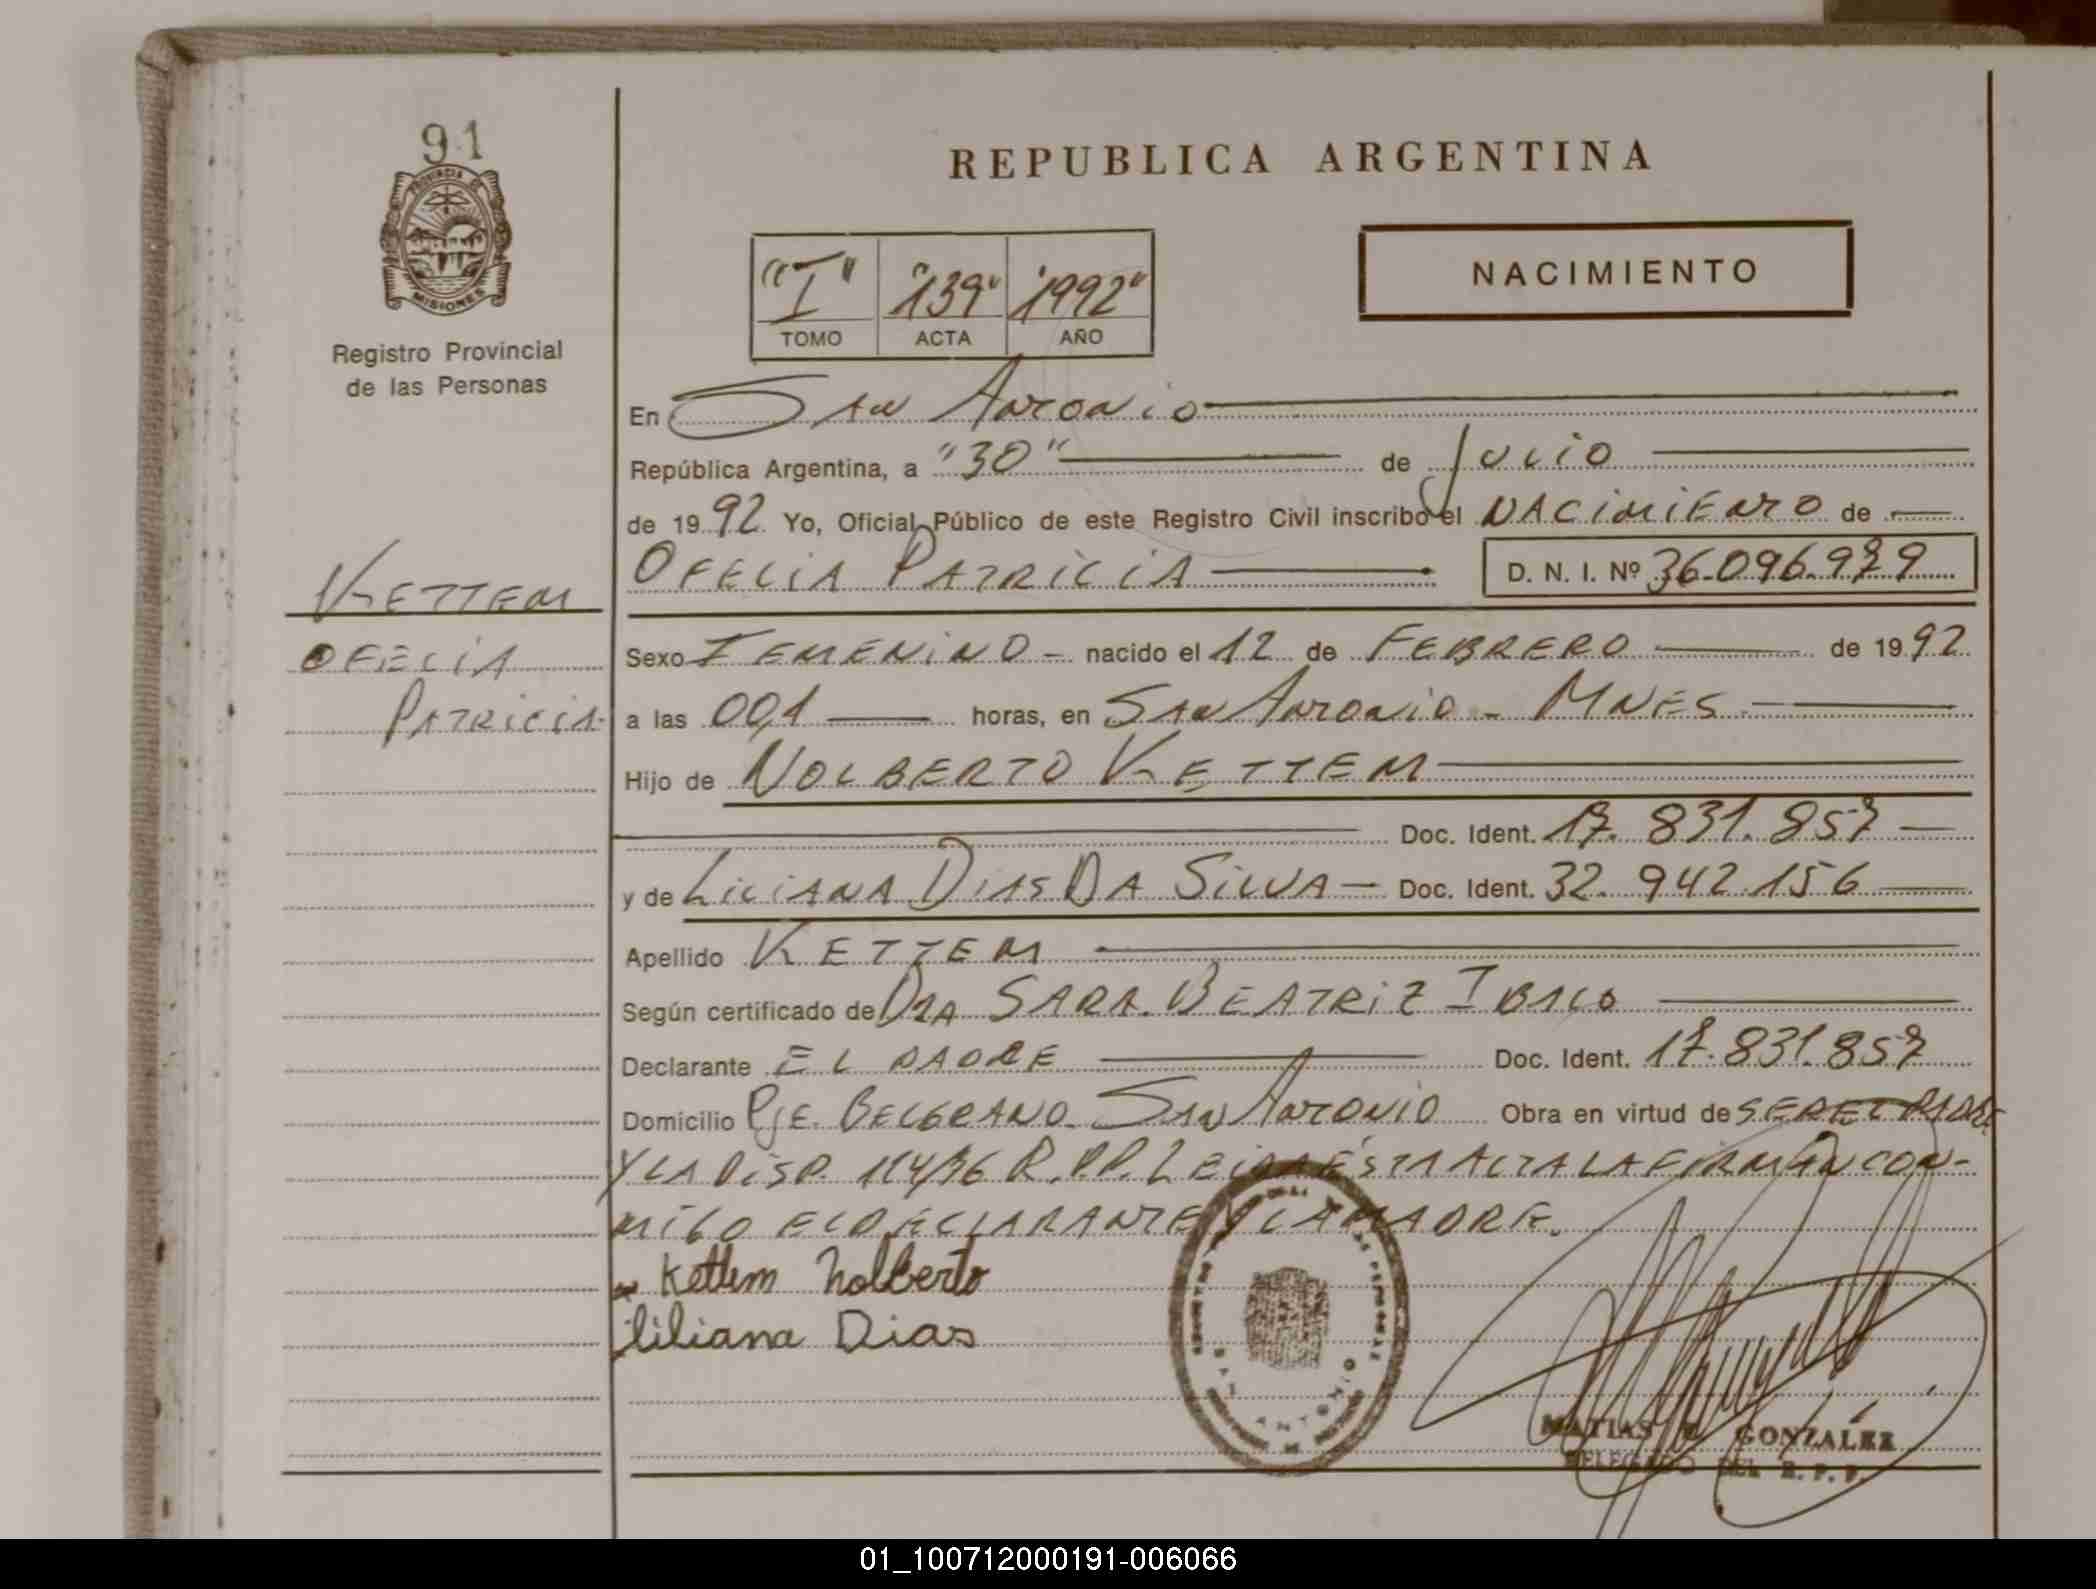 91
PROVINCIA DE
MISIONES
Registro Provincial
de las Personas
KETTEM
OFELIA
PATRICIA
REPUBLICA ARGENTINA
"I" "139" "1992"
TOMO ACTA AÑO
NACIMIENTO
En SAN ANTONIO
República Argentina, a "30" de JULIO
de 1992 Yo, Oficial Público de este Registro Civil inscribo el NACIMIENTO de
OFELIA PATRICIA D. N. I. Nº 36.096.979
Sexo FEMENINO - nacido el 12 de FEBRERO de 1992
a las 00,1 horas, en SAN ANTONIO - MNES
Hijo de NOLBERTO KETTEM
Doc. Ident. 17.831.857
y de LILIANA DIAS DA SILVA - Doc. Ident. 32.942.156
Apellido KETTEM
Según certificado de DRA SARA BEATRIZ
Declarante EL PADRE Doc. Ident. 17.831.857
Domicilio PJE. BELGRANO. SAN ANTONIO Obra en virtud de SER EL PADRE
Y LA DISP. R.P.P. LEIDA ÉSTA ACTA LA FIRMAN CON-
MIGO EL DECLARANTE Y LA MADRE.
Kettem Nolberto
liliana Dias
SAN ANTONIO
MATIAS GONZALEZ
DELEGADO DEL R. P. P.
01_100712000191-006066